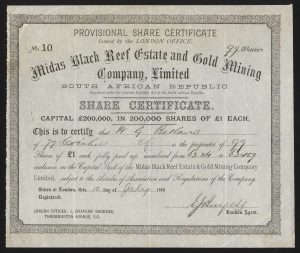 PROVISIONAL SHARE CERTIFICATE
Issued by the LONDON OFFICE.
No. 10
99 Shares
Midas Black Reef Estate and Gold Mining
Company, Limited
SOUTH AFRICAN REPUBLIC.
SHARE CERTIFICATE.
CAPITAL £200,000, IN 200,000 SHARES OF £1 EACH.
This is to certify that W. G.
of 77 Cornhill is the proprietor of 99
Shares of £1 each fully paid up, numbered from to
inclusive in the Capital Stock of the Midas Black Reef Estate & Gold Mining Company
Limited, subject to the Articles of Association and Regulations of the Company.
Given at London, this 10 day of July
Registered.
London Agent.
LONDON OFFICES: 1, DRAPERS' GARDENS,
THROGMORTON AVENUE, E.C.